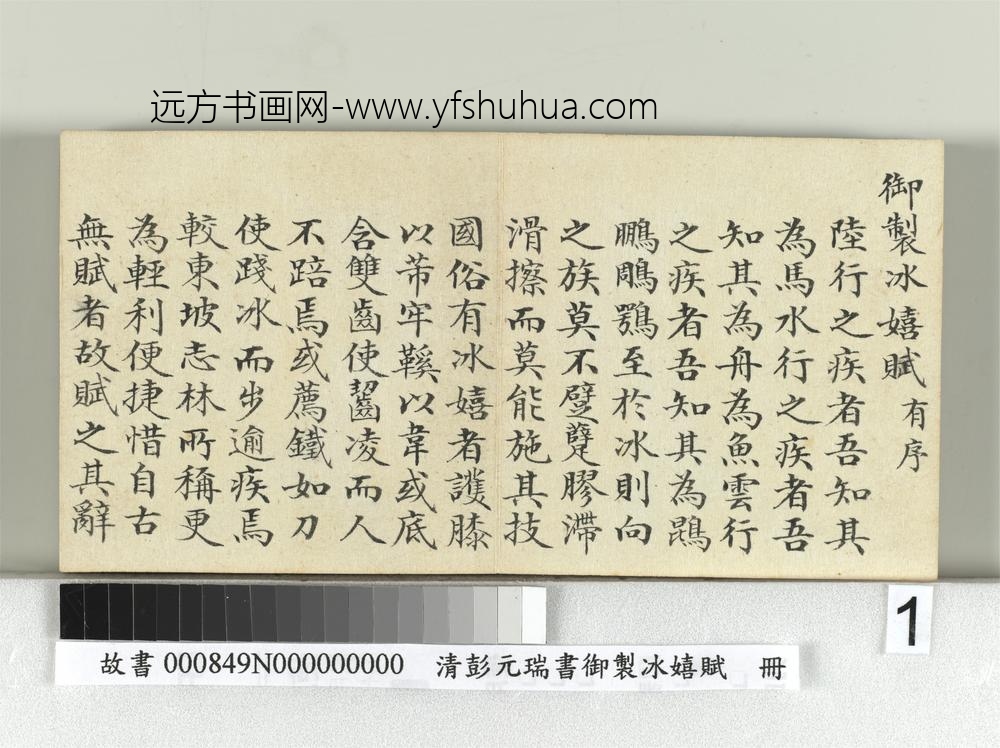 远方书画网-www.yfshuhua.com
御製冰嬉賦 有序
陸行之疾者吾知其
為馬水行之疾者吾
知其為舟為魚雲行
之疾者吾知其為鵾
鵬鵰鶚至於冰則向
之族莫不躄躠膠滯
滑擦而莫能施其技
國俗有冰嬉者護膝
以芾牢鞵以韋或底
含雙齒使齧凌而人
不踣焉或薦鐵如刀
使踐冰而步逾疾焉
較東坡志林所稱更
為輕利便捷惜自古
無賦者故賦之其辭
1
故書 000849N000000000 清彭元瑞書御製冰嬉賦 冊